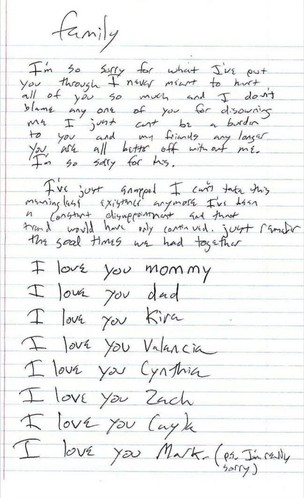 family
I'm so sorry for what I've put
you through I never meant to hurt
all of you so much and I don't
blame any one of you for disowning
me I just cant be a burden
to you and my friends any longer
You are all better off without me.
I'm so sorry for his.
I've just snapped I can't take this
meaningless existence anymore I've been
a constant disappointment and that
trend would have only continued. just remember
the good times we had together
I love you mommy
I love you dad
I love you Kira
I love you Valancia
I love you Cynthia
I love you Zach
I love you Cayla
I love you Mark. (p.s. I'm really
sorry)